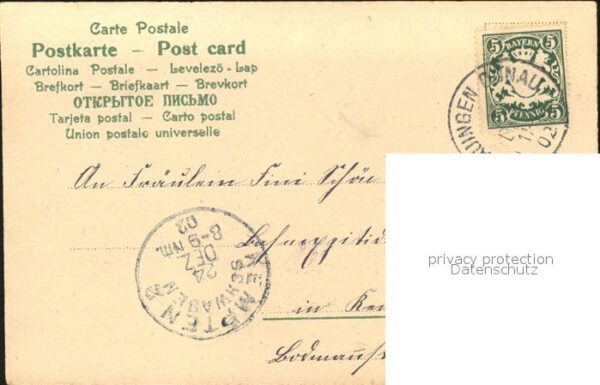 Carte Postale
Postkarte — Post card
Cartolina Postale — Levelező-Lap
Brefkort — Briefkaart — Brevkort
ОТКРЫТОЕ ПИСЬМО
Tarjeta postal — Carto postal
Union postale universelle
5 BAYERN 5
5 PFENNIG 5
UINGEN DONAU
02
An Fräulein Fini Schön
in Kem
Bodmanst
KEMPTEN
SCHWABEN
24 DEZ
8-9 Nm.
02
privacy protection
Datenschutz